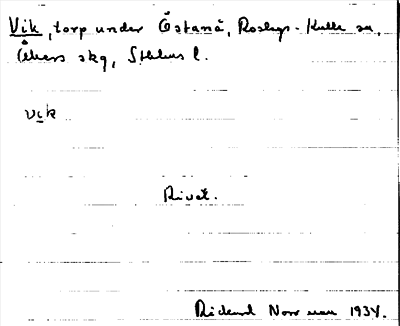 Vik, torp under Östanå, Roslags-Kulla sn,
Åkers skg, Sthlms l.
vik
Rivet.
Rickard Norrman 1934.